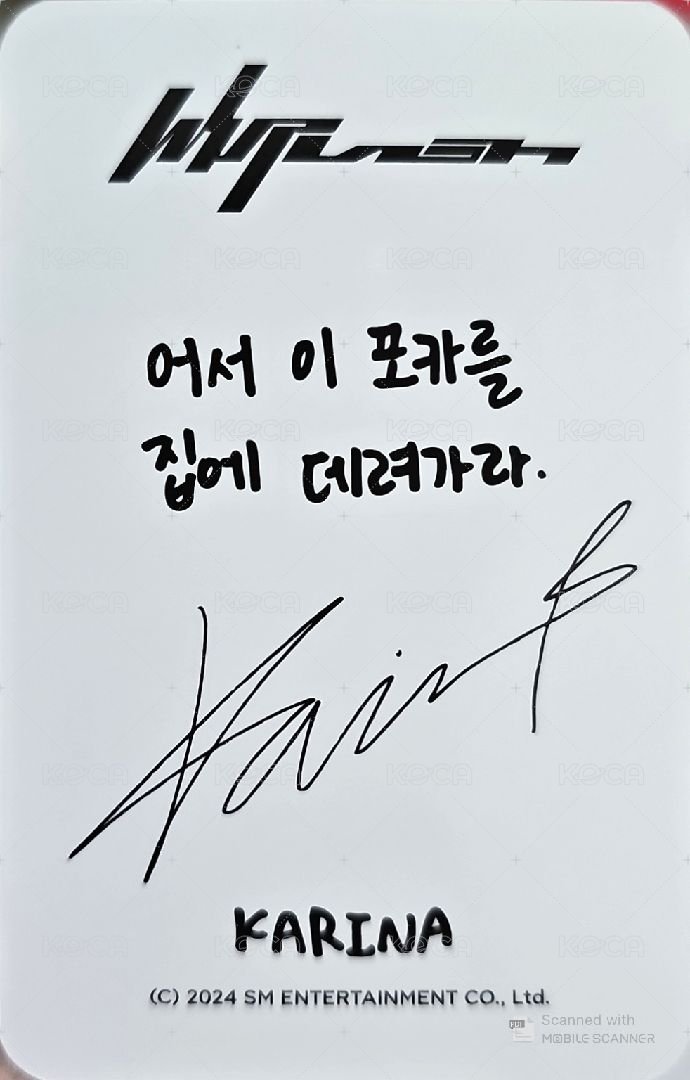 Whiplash
어서 이 포카를
집에 데려가라.
Karina
KARINA
(C) 2024 SM ENTERTAINMENT CO., Ltd.
Scanned with
MOBILE SCANNER
KOCA